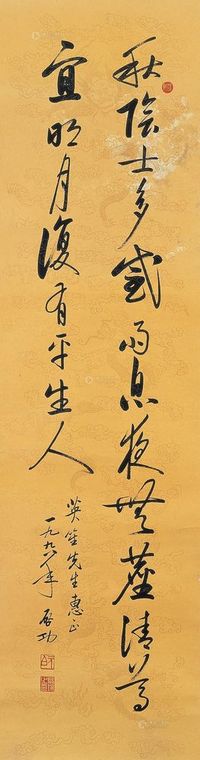 秋陰士多感雨息夜無塵清尊
宜明月復有平生人
英笙先生惠正
一九九八年 啟功